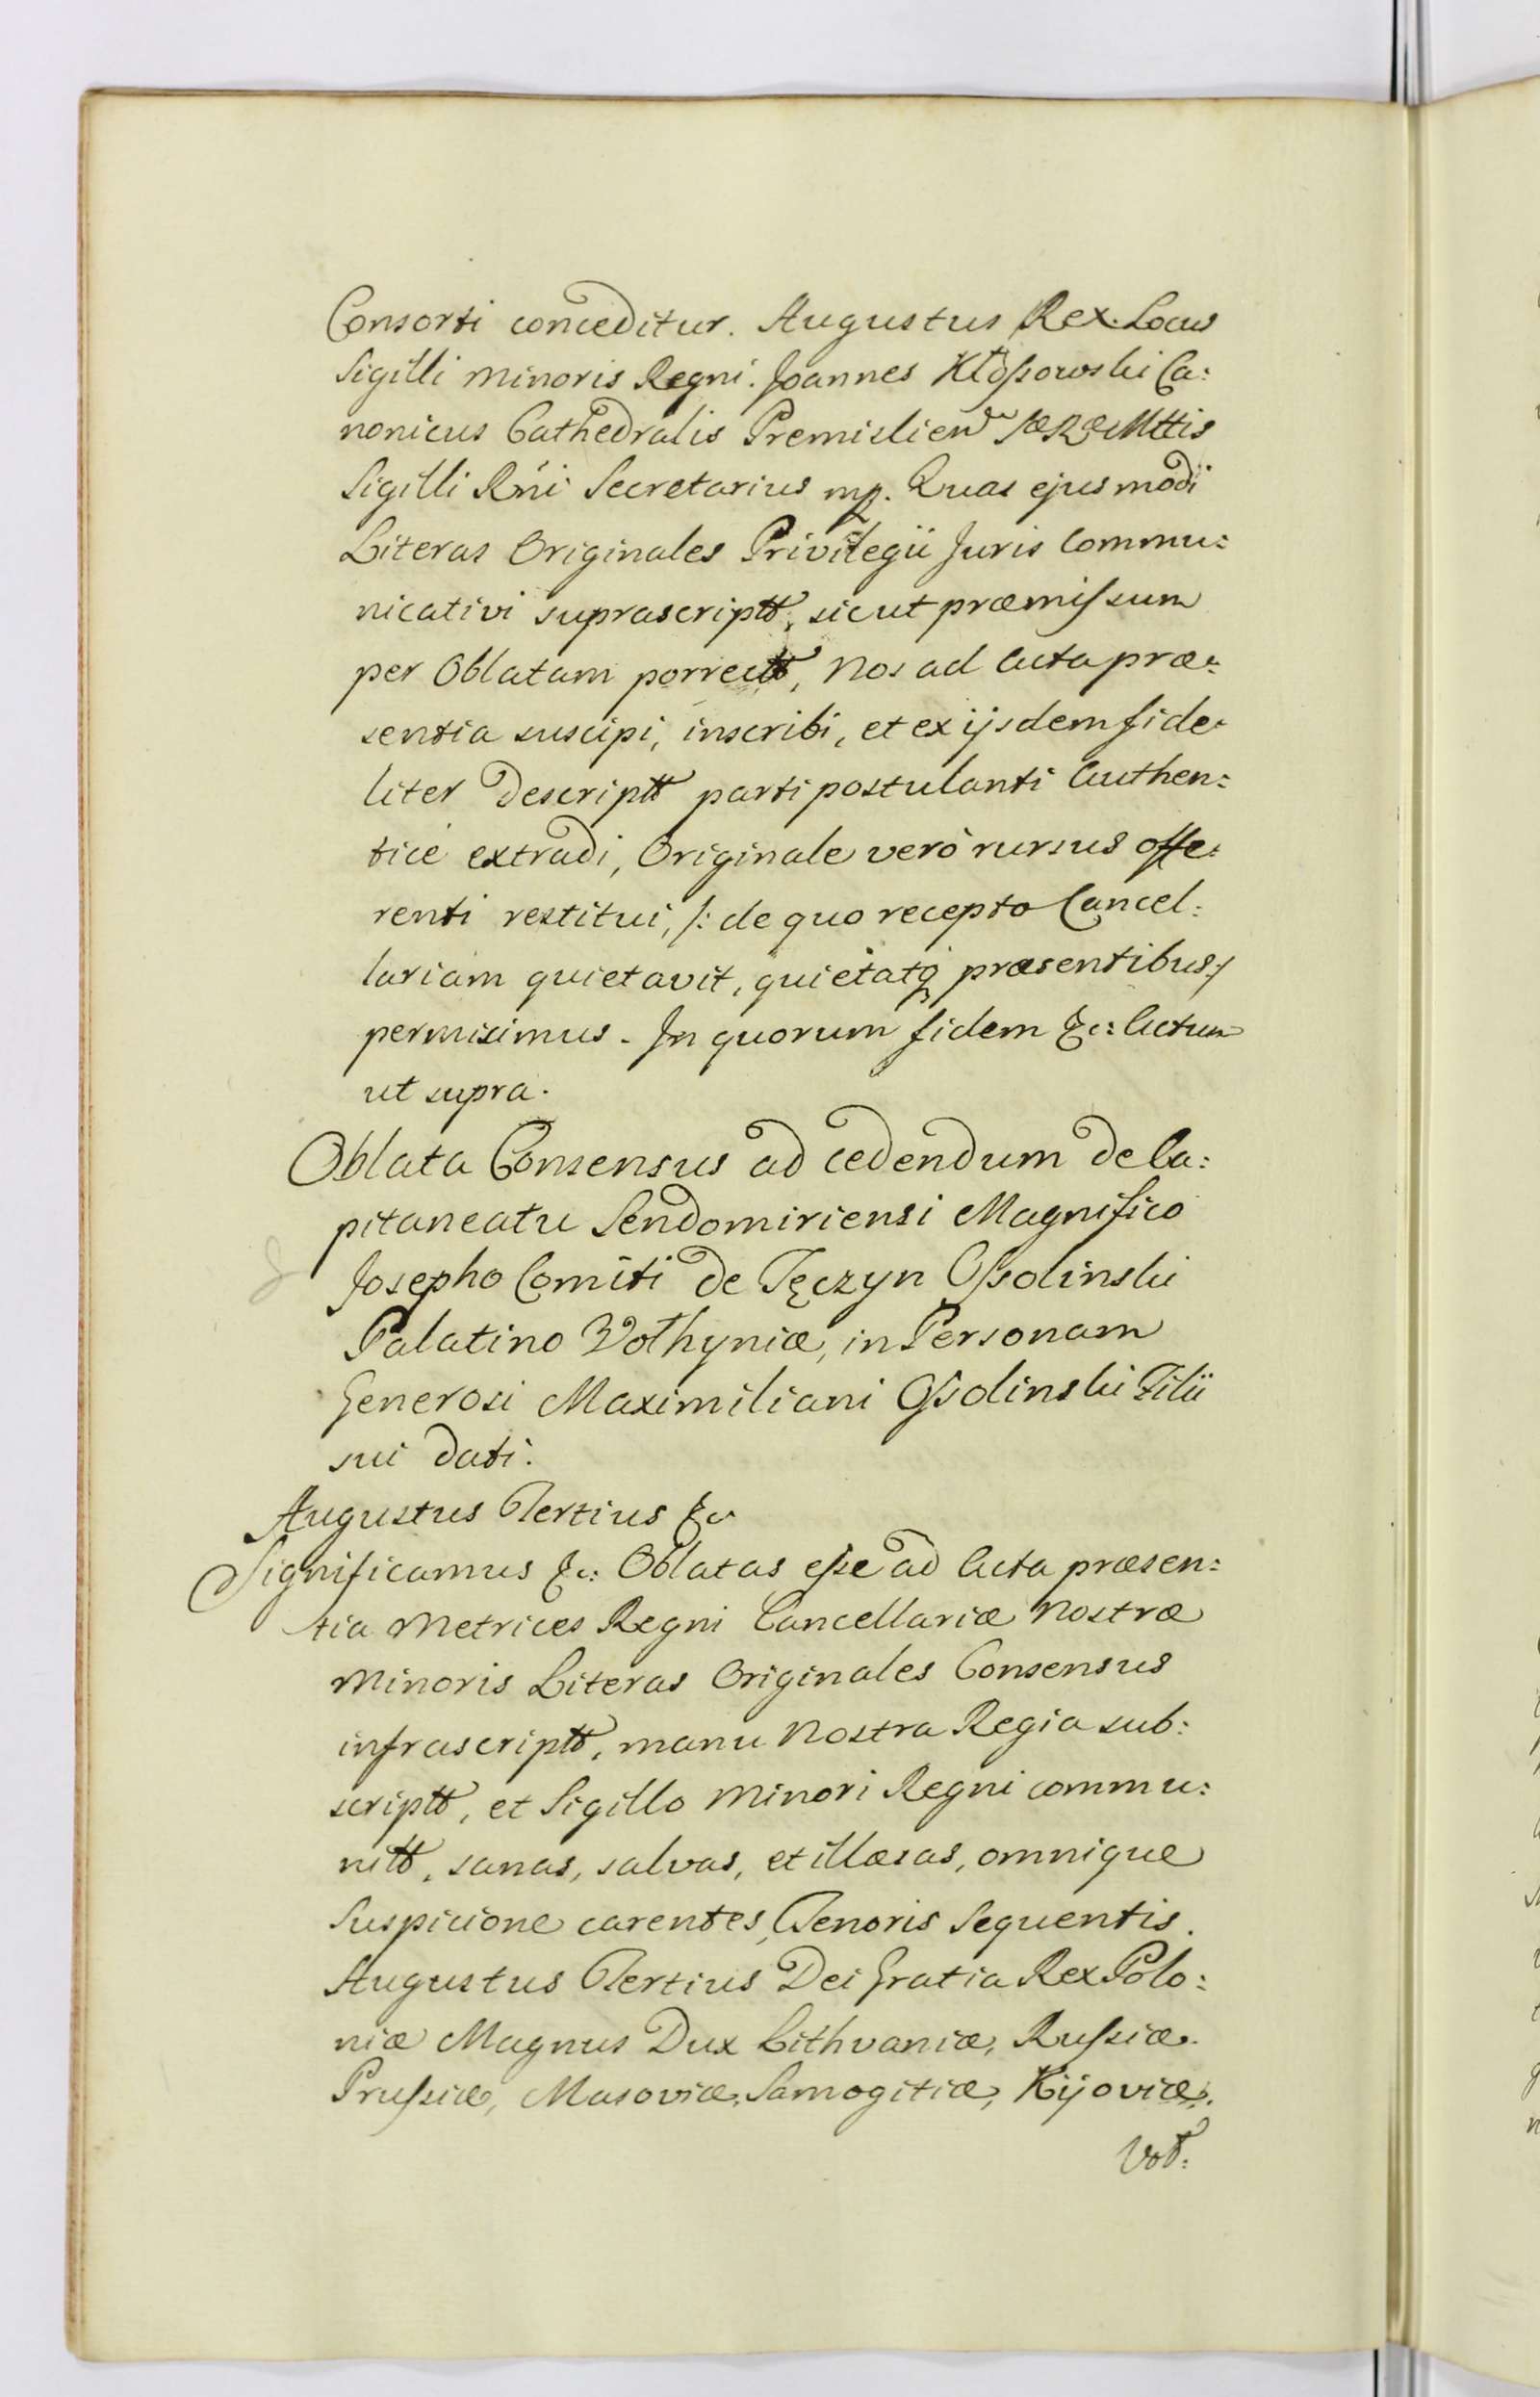 Consorti conceditur. Augustus Rex. Locus
Sigilli minoris Regni. Joannes Kłossowski Ca:
nonicus Cathedralis Premislien SæRæMttis
Sigilli Rńi Secretarius mp. Quas ejusmodi
Literas Originales Privilegii Juris Commu:
nicativi suprascriptt, sicut præmissum
per Oblatam porrectt, Nos ad Acta præ:
sentia suscipi, inscribi, et ex ijsdem fide:
liter Descriptt parti postulanti Authen:
ticè extradi, Originale verò rursus offe:
renti restitui, /: de quo recepto Cancel:
lariam quietavit, quietatq præsentibus :/
permisimus. In quorum fidem &c: Actum
ut supra.
Oblata Consensus ad cedendum de Ca:
pitaneatu Sendomiriensi Magnifico
Josepho Comiti de Tęczyn Ossolinski
Palatino Wołhyniæ, in Personam
Generosi Maximiliani Ossolinski Filii
sui dati.
Augustus Tertius &c
Significamus &c: Oblatas esse ad Acta præsen:
tia Metrices Regni Cancellariæ Nostræ
Minoris Literas Originales Consensus
infrascriptt, manu Nostra Regia sub:
scriptt, et Sigillo Minori Regni commu:
nitt, sanas, salvas, et illæsas, omnique
Suspicione carentes, Tenoris Sequentis.
Augustus Tertius Dei Gratia Rex Polo:
niæ Magnus Dux Lithvaniæ, Russiæ.
Prussiæ, Masoviæ, Samogitiæ, Kijoviæ,
Voł: